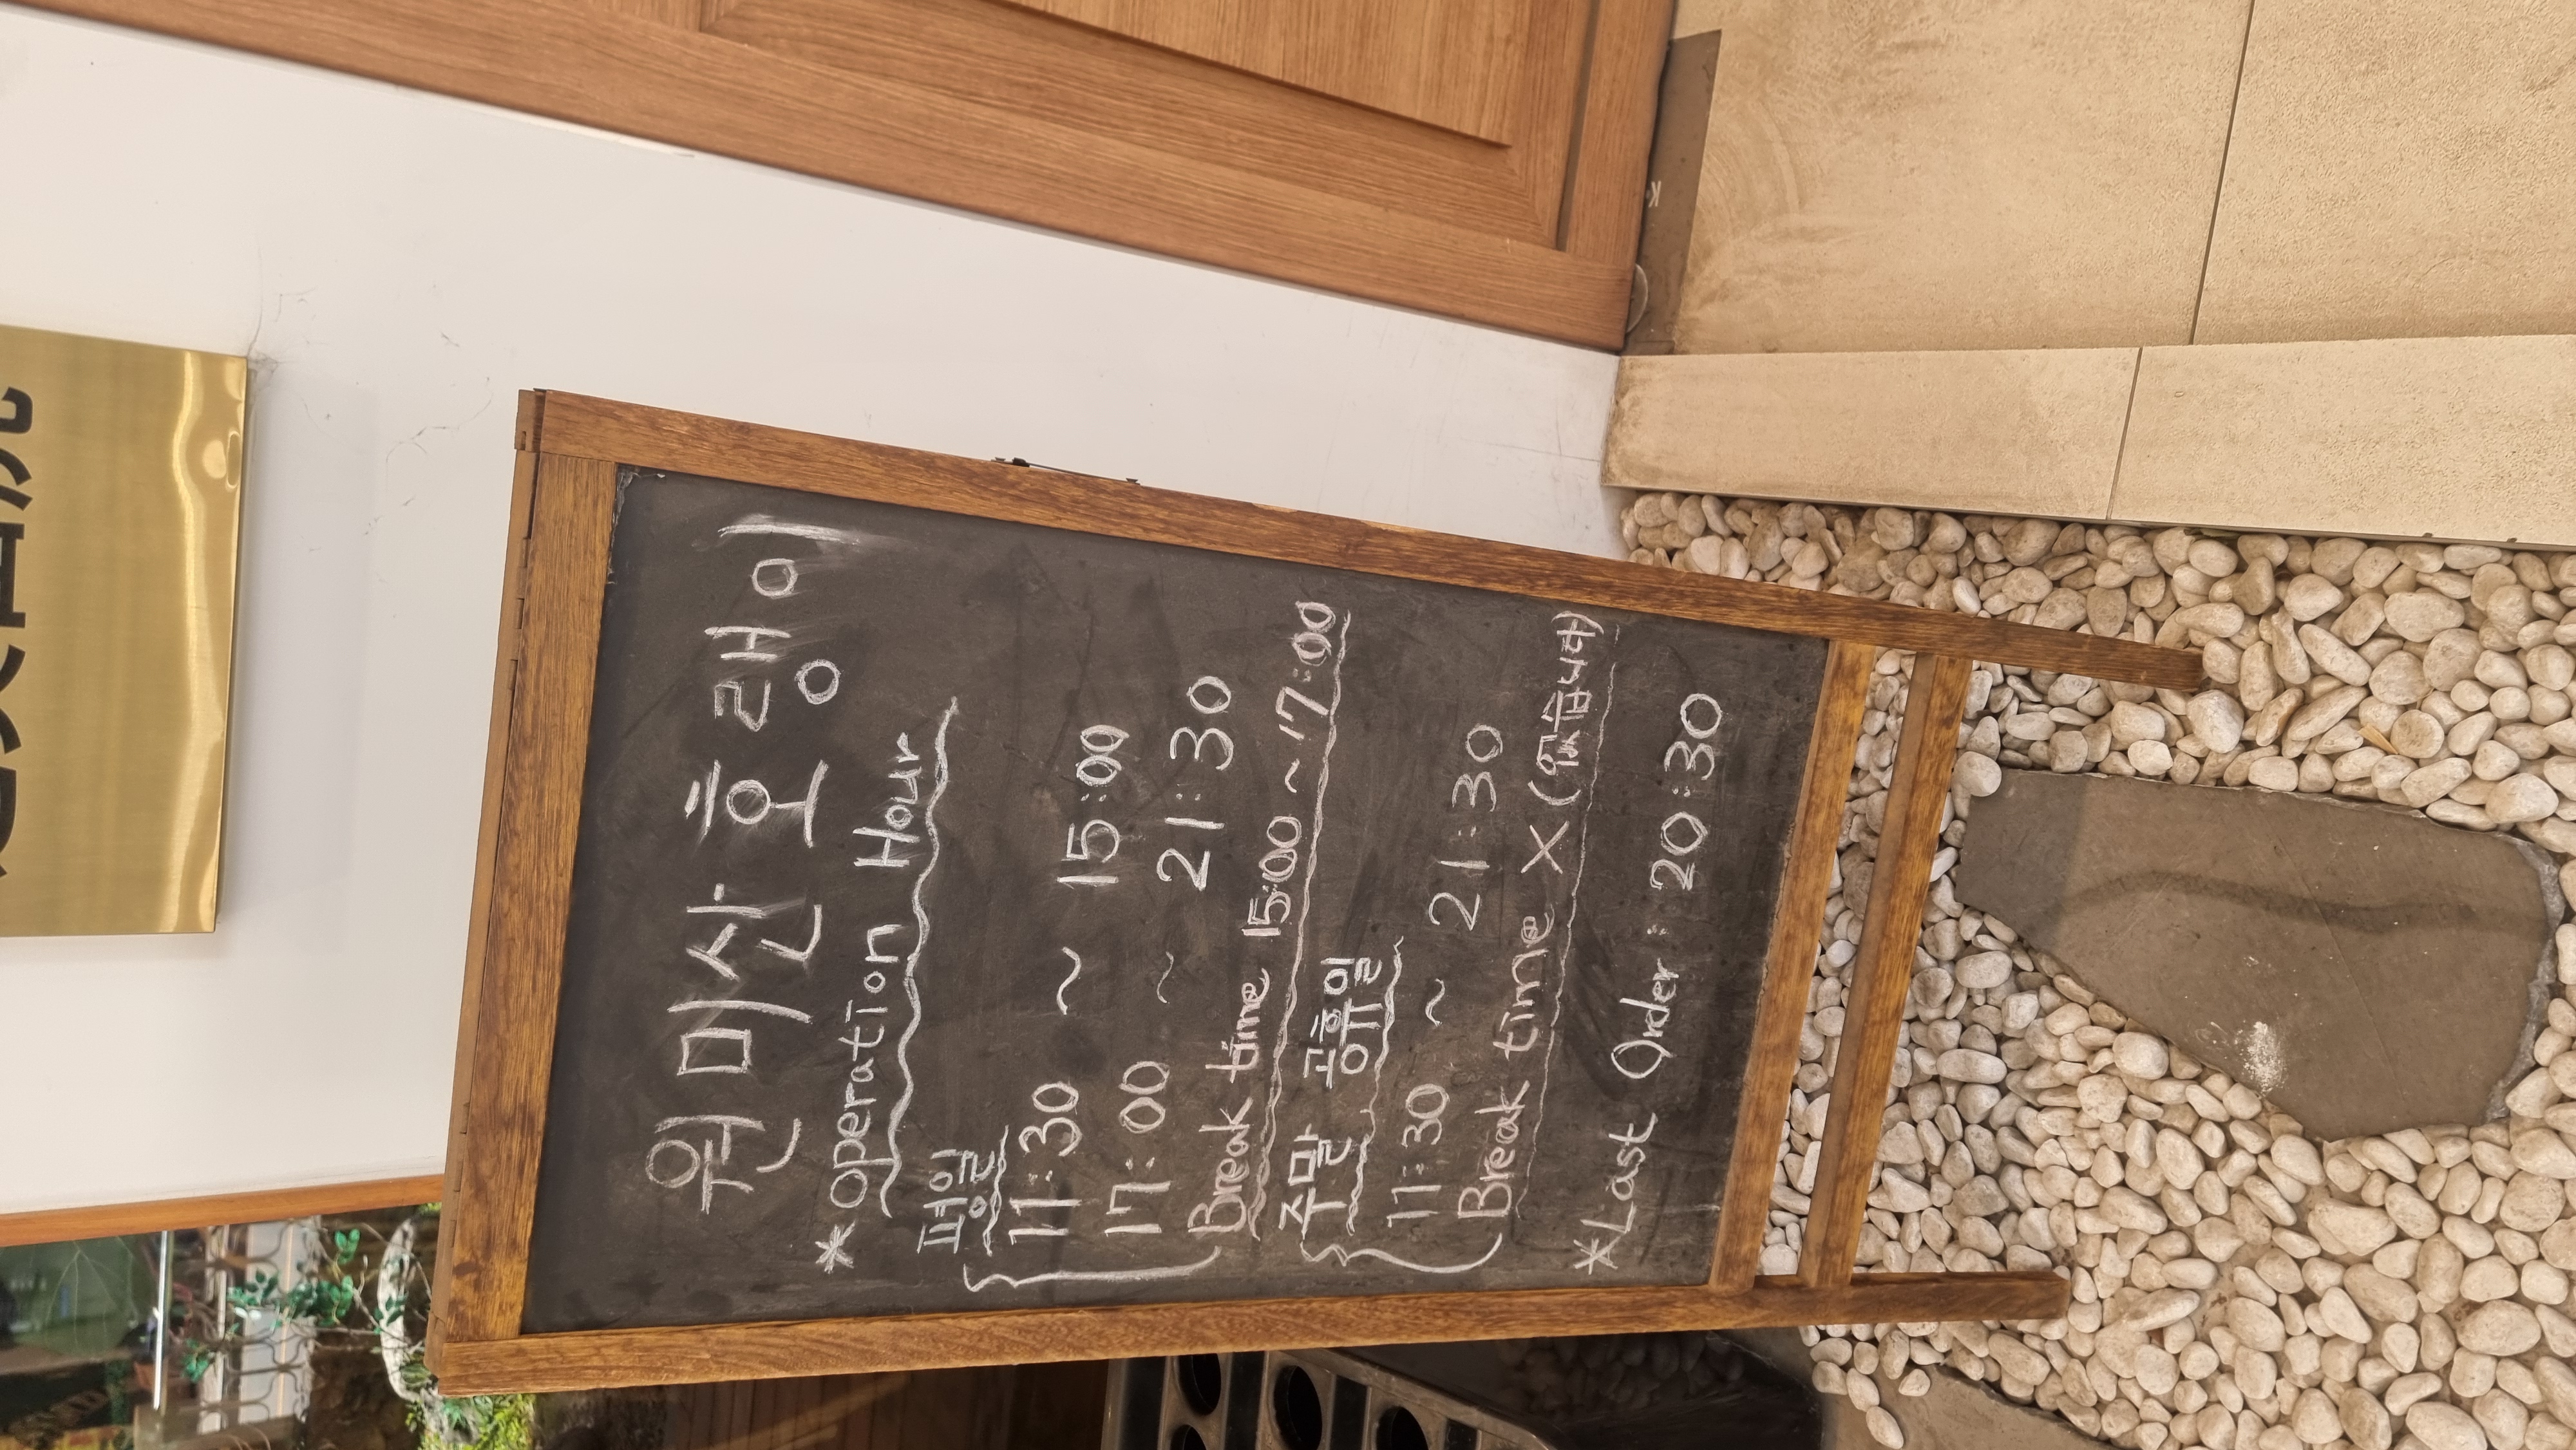 원미산 호랭이
*operation Hour
평일
11:30 ~ 15:00
17:00 ~ 21:30
Break time 15:00 ~ 17:00
주말, 공휴일
11:30 ~ 21:30
Break time X (있습니다)
*Last Order : 20:30